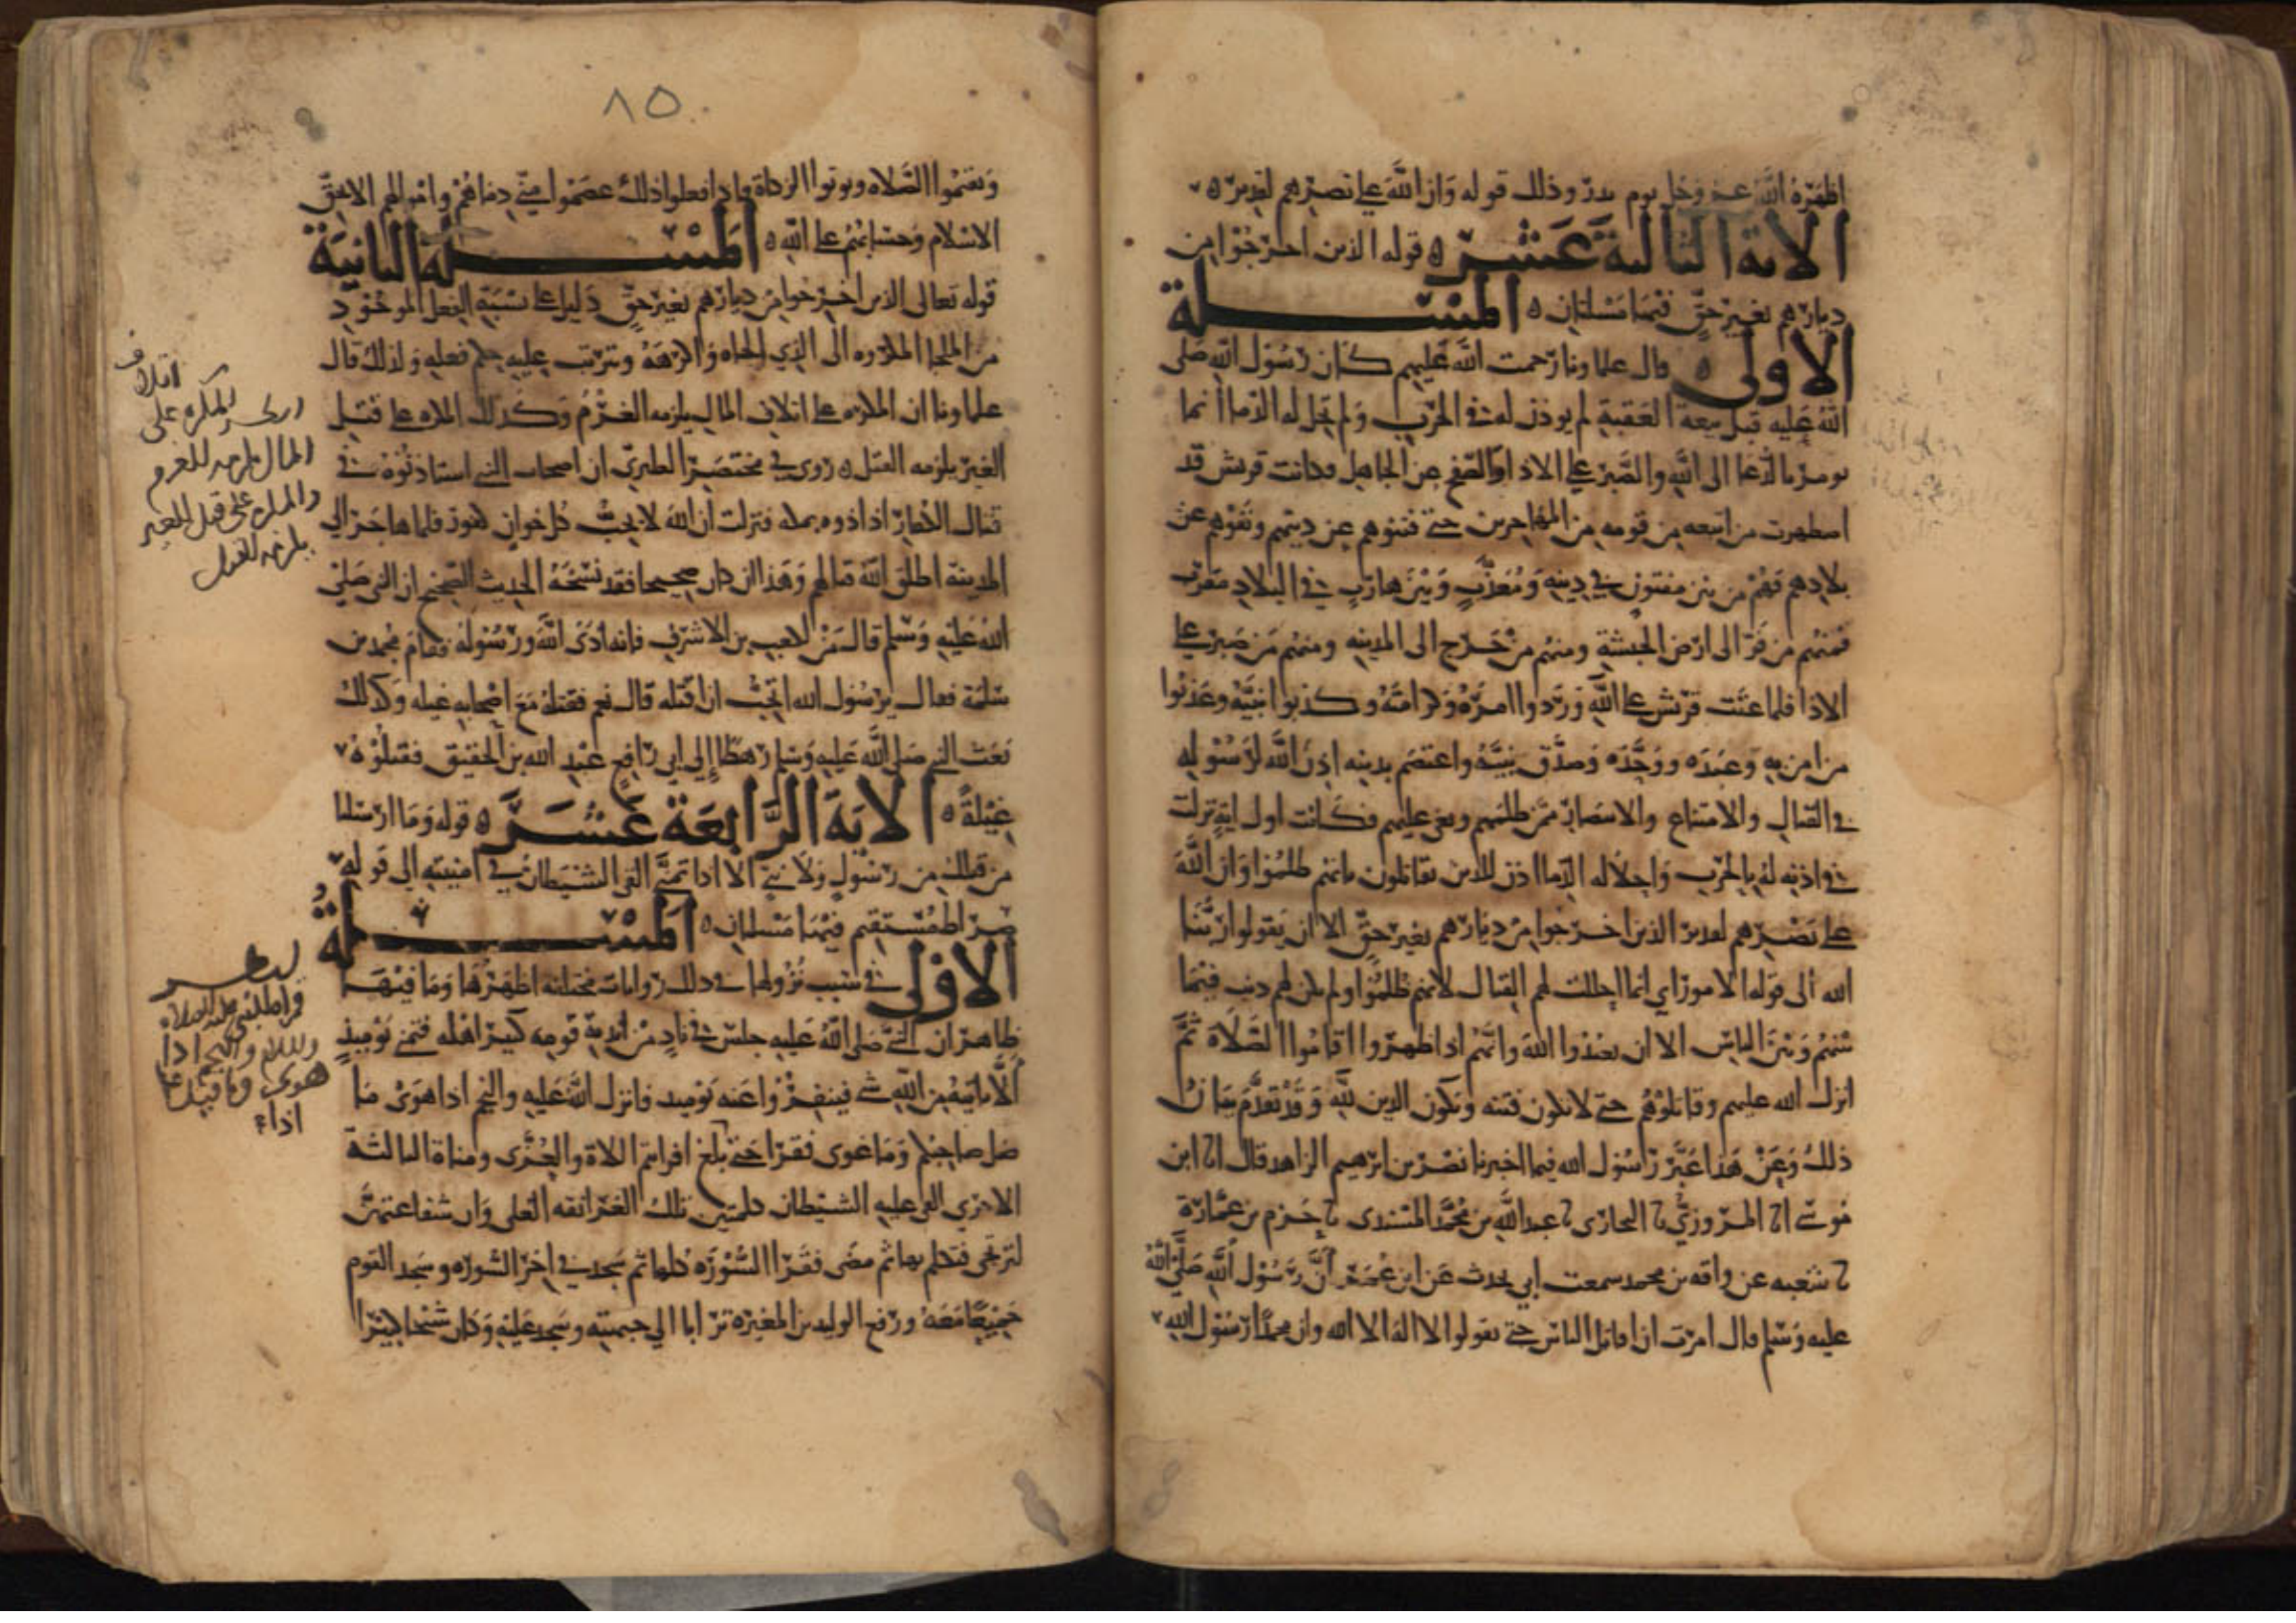 اظهره الله عز وجل يوم بدر وذلك قوله وان الله على نصرهم لقدير ه
الاية الثالثة عشر ه قوله الذين اخرجوا من
ديارهم بغير حق فيها مسلتان ه المسلة
الاولى ه قال علماونا رحمت الله عليهم كان رسول الله صلى
الله عليه قبل بيعة العقبة لم يوذن له في الحرب ولم تحل له الدما انما
يومر بالدعا الى الله والصبر على الاذا والصفح عن الجاهل وكانت قريش قد
اضطهرت من اتبعه من قومه من المهاجرين حتى فتنوهم عن دينهم ونفوهم عن
بلادهم فهم من بين مفتون في دينه ومعذب وبين هارب في البلاد مغرب
فمنهم من فر الى ارض الحبشة ومنهم من خرج الى المدينه ومنهم من صبر على
الاذا فلما عتت قريش على الله وردوا امره وكرامته وكذبوا نبيه وعذبوا
من امن به وعبده ووحده وصدق نبيه واعتصم بدينه اذن الله لرسوله
في القتال والامتناع والانتصار ممن ظلمهم وبغى عليهم فكانت اول اية نزلت
في اذنه له بالحرب واحلاله الدما اذن للذين يقاتلون بانهم ظلموا وان الله
على نصرهم لقدير الذين اخرجوا من ديارهم بغير حق الا ان يقولوا ربنا
الله الى قوله الامور اي انما احللت لهم القتال لانهم ظلموا ولم يكن لهم ذنب فيما
بينهم وبين الناس الا ان يعبدوا الله وانهم اذا ظهروا اقاموا الصلاة ثم
انزل الله عليهم وقاتلوهم حتى لا تكون فتنه ويكون الدين لله وقد تقدم بيان
ذلك وعن هذا عبر رسول الله فيما اخبرنا نصر بن ابرهيم الزاهد قال انا ابن
موسى انا المروزي نا البخاري نا عبد الله بن محمد المسندي نا حرمي بن عمارة
نا شعبه عن واقد بن محمد سمعت ابي يحدث عن ابن عمر ان رسول الله صلى الله
عليه وسلم قال امرت ان اقاتل الناس حتى يقولوا لا اله الا الله وان محمدا رسول الله
٨٥
ويقيموا الصلاه ويوتوا الزكاة فاذا فعلوا ذلك عصموا مني دماهم واموالهم الا بحق
الاسلام وحسابهم على الله ه المسلة الثانية
قوله تعالى الذين اخرجوا من ديارهم بغير حق دليل على نسبة الفعل الموجود
من الملجا المكره الى الذي الجاه واكرهه وترتب عليه حكم فعله ولذلك قال
علماونا ان المكره على اتلاف المال يلزمه الغرم وكذلك المكره على قتل
الغير يلزمه القتل ه روى في مختصر الطبري ان اصحاب النبي استاذنوه في
قتال الكفار اذ اذوه بمكه فنزلت ان الله لا يحب كل خوان كفور فلما هاجر الى
المدينة اطلق الله قتالهم وهذا ان كان صحيحا فقد نسخه الحديث الصحيح ان النبي صلى
الله عليه وسلم قال من لكعب بن الاشرف فانه اذى الله ورسوله فقام محمد بن
سلمة فقال يرسول الله اتحب ان اقتله قال نعم فقتله مع اصحابه غيله وكذلك
بعث النبي صلى الله عليه وسلم رهطا الى ابي رافع عبد الله بن الحقيق فقتلوه
غيلة ه الاية الرابعة عشر ه قوله وما ارسلنا
من قبلك من رسول ولا نبي الا اذا تمنى القى الشيطان في امنيته الى قوله
صراط مستقيم فيها مسلتان ه المسلة
الاولى في سبب نزولها في ذلك روايات مختلفه اظهرها وما فيها
ظاهر ان النبي صلى الله عليه جلس في ناد من اندية قومه كبير اهله فتمنى يوميذ
الا ياتيه من الله شي فينفروا عنه يوميذ فانزل الله عليه والنجم اذا هوى ما
ضل صاحبكم وما غوى فقرا حتى بلغ افرايتم اللاة والعزى ومناة الثالثة
الاخرى القى عليه الشيطان كلمتين تلك الغرانقه العلى وان شفاعتهن
لترتجى فتكلم بها ثم مضى فقرا السورة كلها ثم سجد في اخر السورة وسجد القوم
جميعا معه ورفع الوليد بن المغيرة ترابا الى جبهته وسجد عليه وكان شيخا كبيرا
اتلاف
المكره على
المال يلزمه الغرم
والمكره على قتل الغير
يلزمه القتل
والنجم اذا
هوى وما قيل